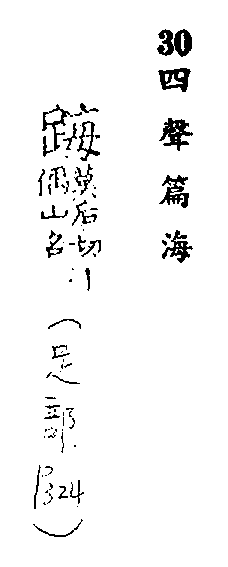 30四聲篇海
踇莫后切丨
偶山名
(足部P324)